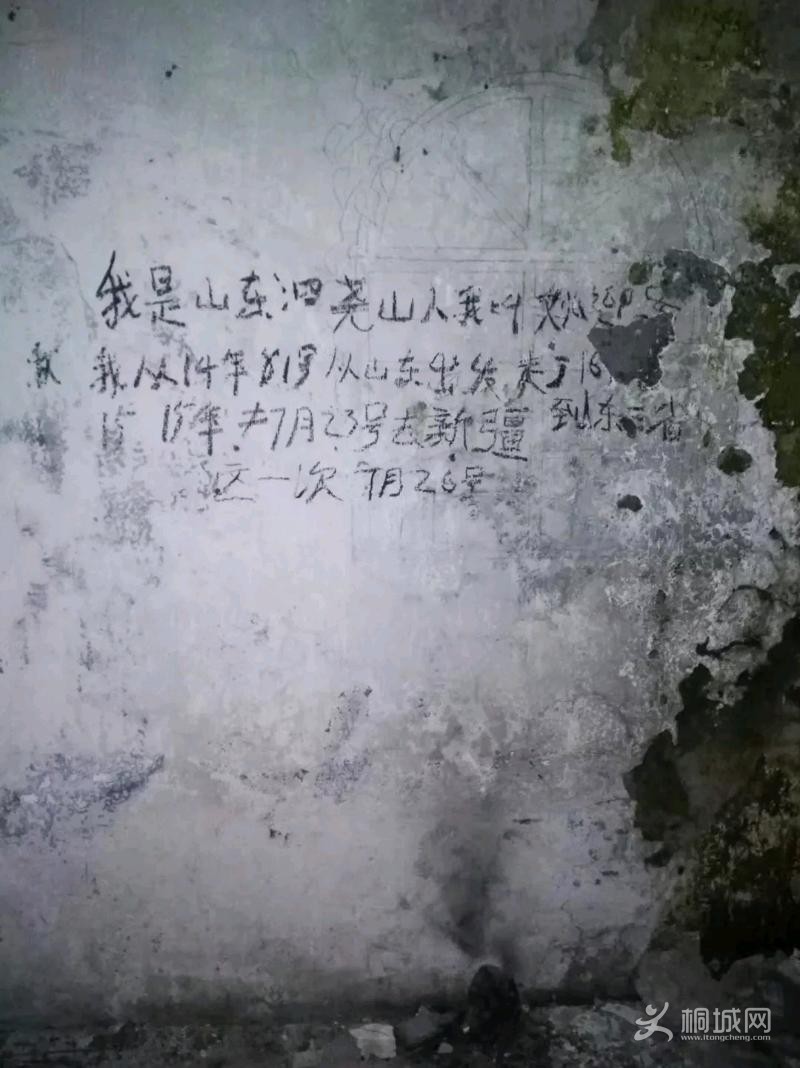 我是山东泗尧山人我叫
我 我从14年81号从山东出发走了16
15 15年 7月23号去新疆 到东三省
这一次 7月26号
桐城网
www.itongcheng.com